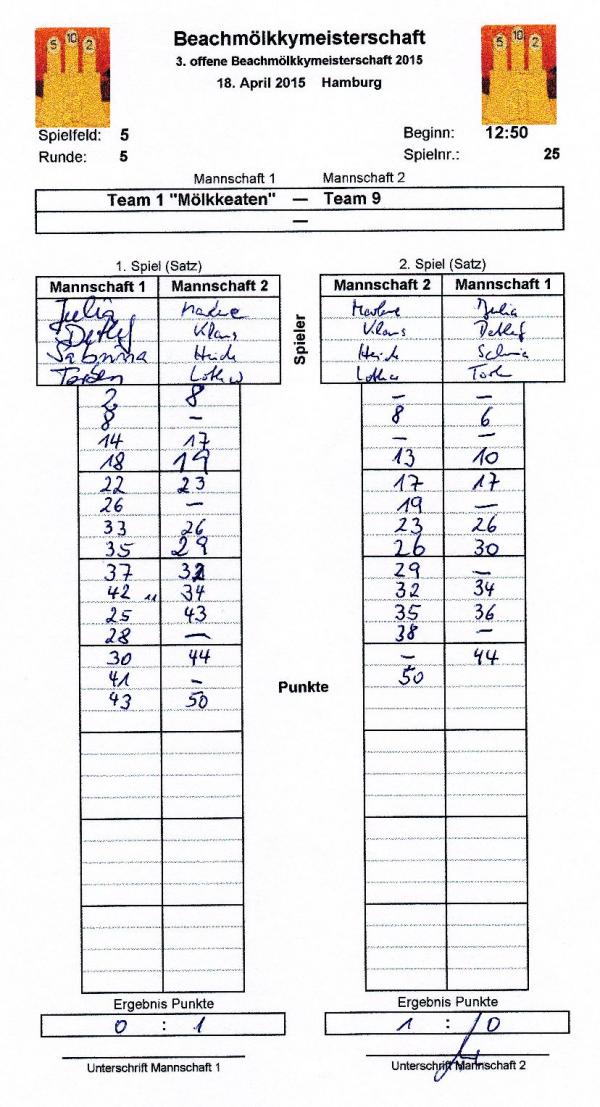 5 10 2
Beachmölkkymeisterschaft
5 10 2
3. offene Beachmölkkymeisterschaft 2015
18. April 2015 Hamburg
Spielfeld: 5 Beginn: 12:50
Runde: 5 Spielnr.: 25
Mannschaft 1 Mannschaft 2
Team 1 "Mölkkeaten" — Team 9
—
1. Spiel (Satz) 2. Spiel (Satz)
Mannschaft 1 Mannschaft 2 Mannschaft 2 Mannschaft 1
Julia Julia
Detlef Klaus Klaus Detlef
Sabrina Heide Heide
Lothar Lothar
Spieler
2 8 — —
8 — 8 6
14 17 — —
18 19 13 10
22 23 17 17
26 — 19 —
33 26 23 26
35 29 26 30
37 32 29 —
42 " 34 32 34
25 43 35 36
28 — 38 —
30 44 — 44
41 — 50
43 50
Punkte
Ergebnis Punkte Ergebnis Punkte
0 : 1 1 : 0
Unterschrift Mannschaft 1 Unterschrift Mannschaft 2